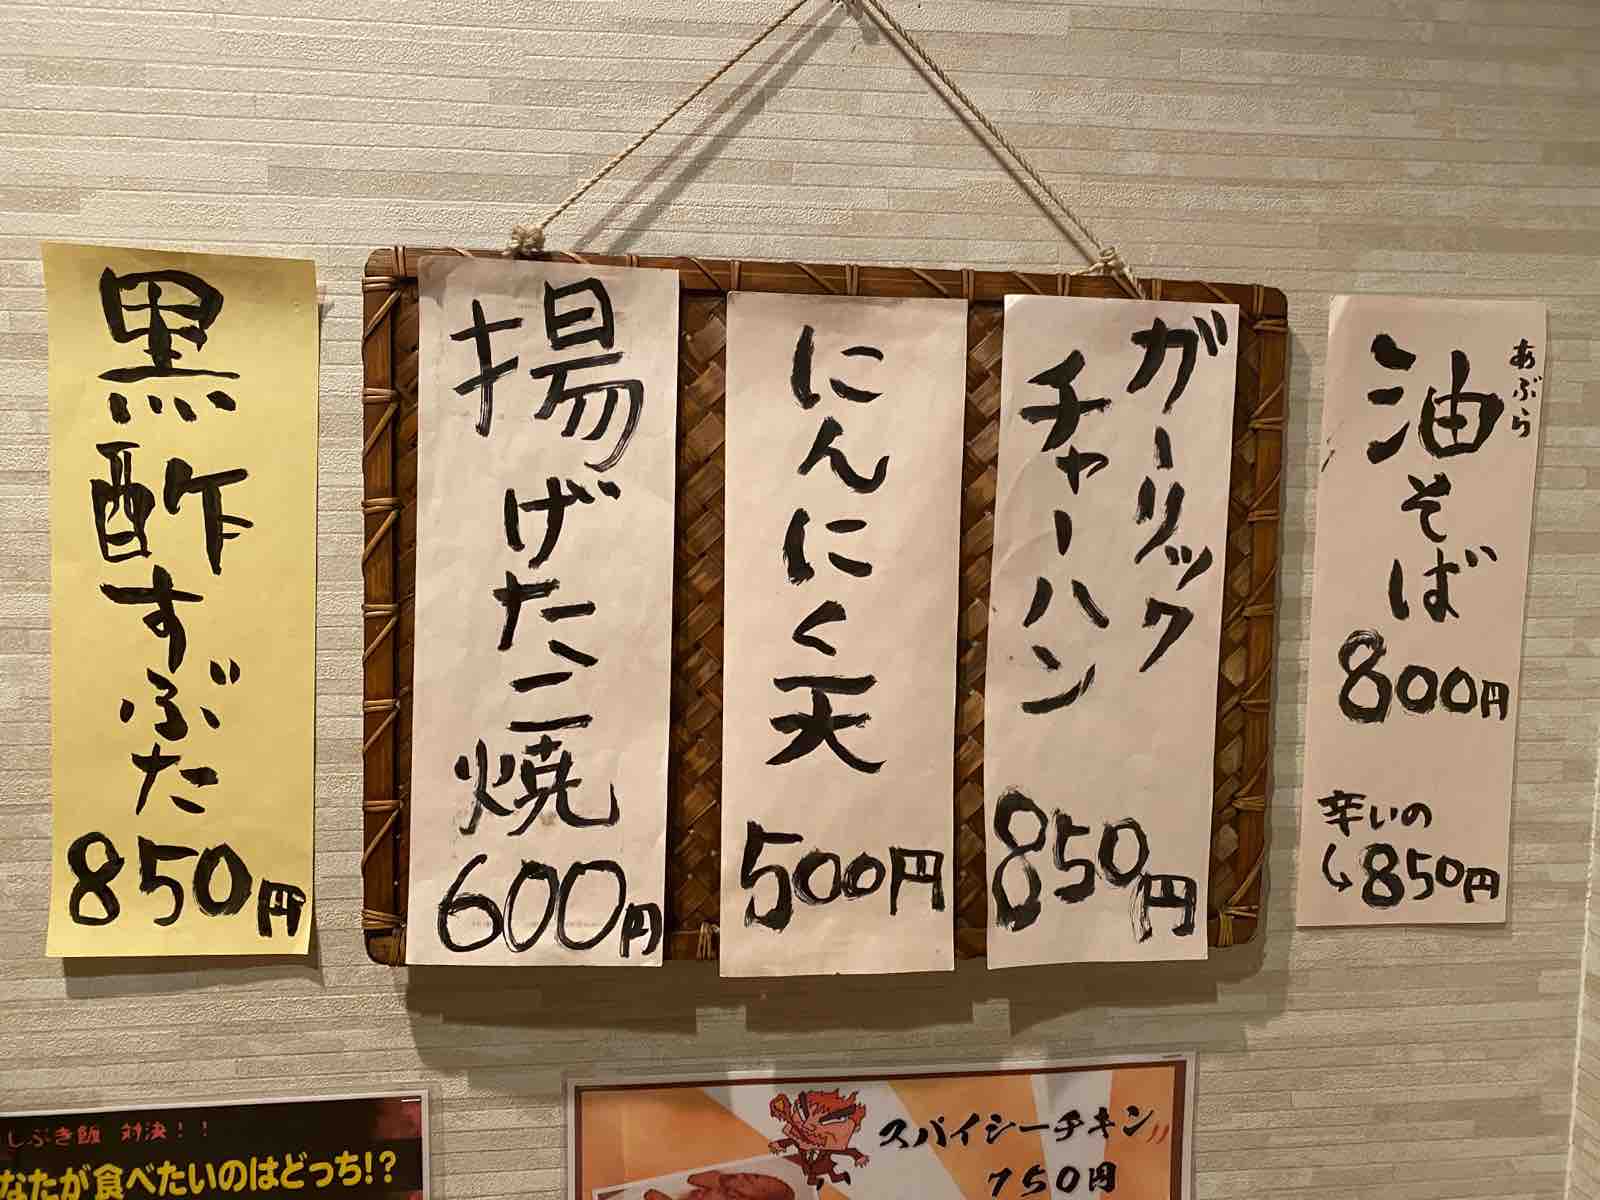 黒酢すぶた
850円
揚げたこ焼
600円
にんにく天
500円
ガーリック
チャーハン
850円
あぶら
油そば
800円
辛いの
↳850円
しぶき飯 対決！！
なたが食べたいのはどっち!?
スパイシーチキン!!
750円